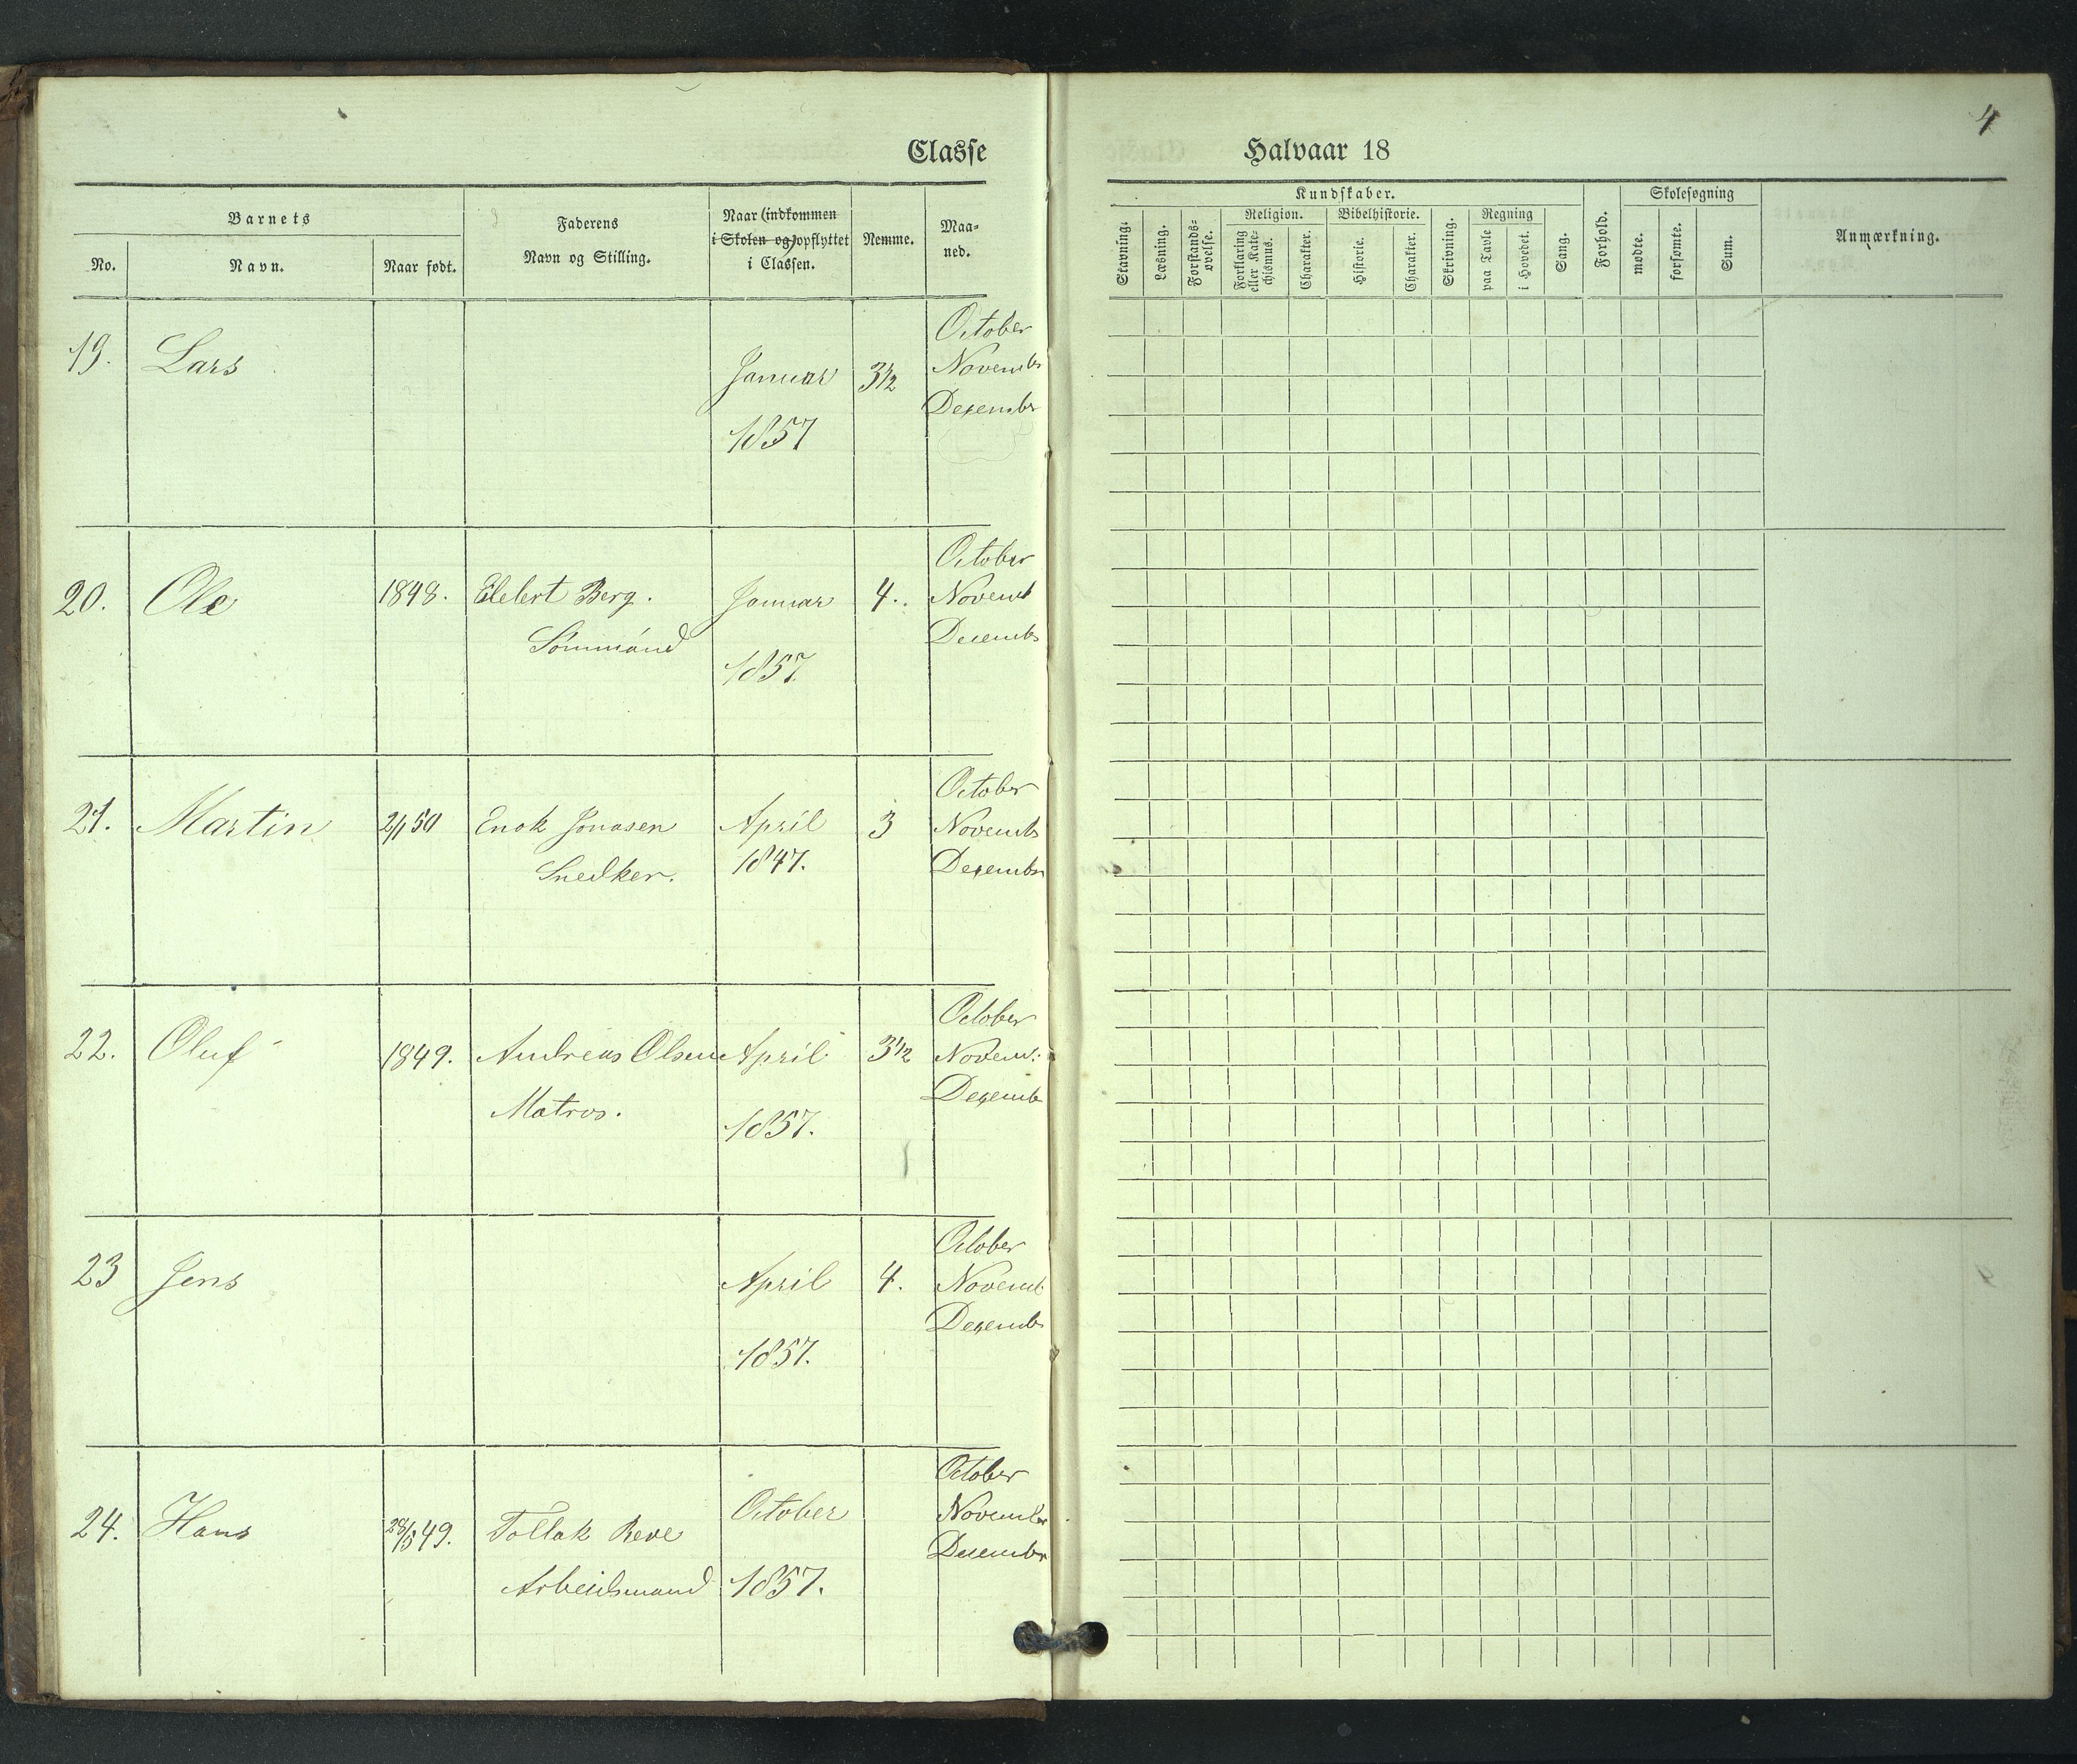 4
Classe Halvaar 18
Barnets
No.
Navn.
Naar født.
Faderens
Navn og Stilling.
Naar (indkommen
i Skolen og) opflyttet
i Classen.
Nemme.
Maa-
ned.
Kundskaber.
Stavning.
Læsning.
Forstands-
øvelse.
Religion.
Forklaring
eller Kate-
chismus.
Charakter.
Bibelhistorie.
Historie.
Charakter.
Skrivning.
Regning
paa Tavle
i Hovedet.
Sang.
Forhold.
Skolesøgning
mødte.
forsømte.
Sum.
Anmærkning.
October
19. Lars Januar 3½ Novembr
1857 Dezembr
October
20. Ole 1848. Elebert Berg. Januar 4. Novemb
Sömmand 1857. Decembr
October
21. Martin 2/1 50 Enok Jonasen April 3 Novembr
Snedker. 1847. Dezember
October
22. Oluf 1849. Andreas Olsen April 3½ Novem:
Matros. 1857. Dezemb
October
23 Jens April 4. Novemb
1857. Dezembr
October
24. Hans 28/5 49. Tollak Reve October November
Arbeidsmand 1857. Decembr